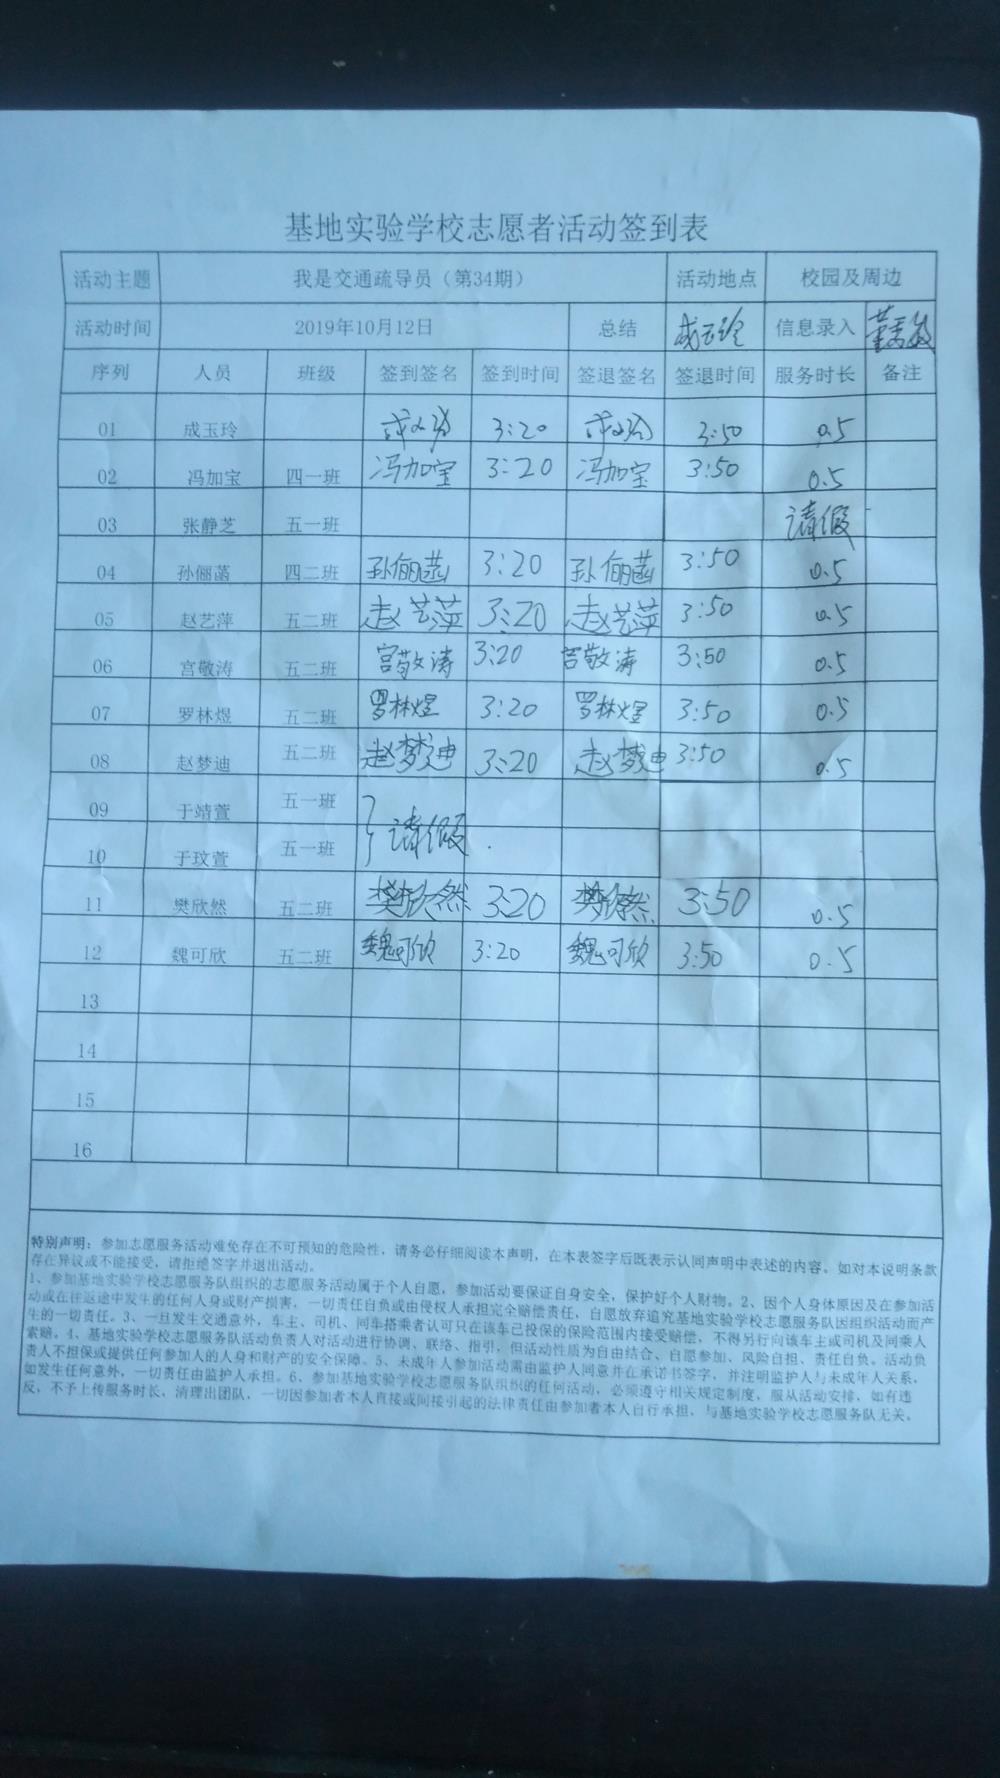 基地实验学校志愿者活动签到表
活动主题 我是交通疏导员（第34期） 活动地点 校园及周边
活动时间 2019年10月12日 总结 成玉玲 信息录入
序列 人员 班级 签到签名 签到时间 签退签名 签退时间 服务时长 备注
01 成玉玲 成玉玲 3:20 成玉玲 3:50 0.5
02 冯加宝 四一班 冯加宝 3:20 冯加宝 3:50 0.5
03 张静芝 五一班 请假
04 孙俪菡 四二班 孙俪菡 3:20 孙俪菡 3:50 0.5
05 赵艺萍 五二班 赵艺萍 3:20 赵艺萍 3:50 0.5
06 宫敬涛 五二班 宫敬涛 3:20 宫敬涛 3:50 0.5
07 罗林煜 五二班 罗林煜 3:20 罗林煜 3:50 0.5
08 赵梦迪 五二班 赵梦迪 3:20 赵梦迪 3:50 0.5
09 于靖萱 五一班
10 于玟萱 五一班 } 请假
11 樊欣然 五二班 樊欣然 3:20 樊欣然 3:50 0.5
12 魏可欣 五二班 魏可欣 3:20 魏可欣 3:50 0.5
13
14
15
16
特别声明：参加志愿服务活动难免存在不可预知的危险性，请务必仔细阅读本声明，在本表签字后既表示认同声明中表述的内容。如对本说明条款
存在异议或不能接受，请拒绝签字并退出活动。
1、参加基地实验学校志愿服务队组织的志愿服务活动属于个人自愿，参加活动要保证自身安全，保护好个人财物。2、因个人身体原因及在参加活
动或在往返途中发生的任何人身或财产损害，一切责任自负或由侵权人承担完全赔偿责任，自愿放弃追究基地实验学校志愿服务队因组织活动而产
生的一切责任。3、一旦发生交通意外，车主、司机、同车搭乘者认可只在该车已投保的保险范围内接受赔偿，不得另行向该车主或司机及同乘人
索赔。4、基地实验学校志愿服务队活动负责人对活动进行协调、联络、指引，但活动性质为自由结合、自愿参加、风险自担、责任自负。活动负
责人不担保或提供任何参加人的人身和财产的安全保障。5、未成年人参加活动需由监护人同意并在承诺书签字，并注明监护人与未成年人关系，
如发生任何意外，一切责任由监护人承担。6、参加基地实验学校志愿服务队组织的任何活动，必须遵守相关规定制度，服从活动安排，如有违
反，不予上传服务时长，清理出团队，一切因参加者本人直接或间接引起的法律责任由参加者本人自行承担，与基地实验学校志愿服务队无关。